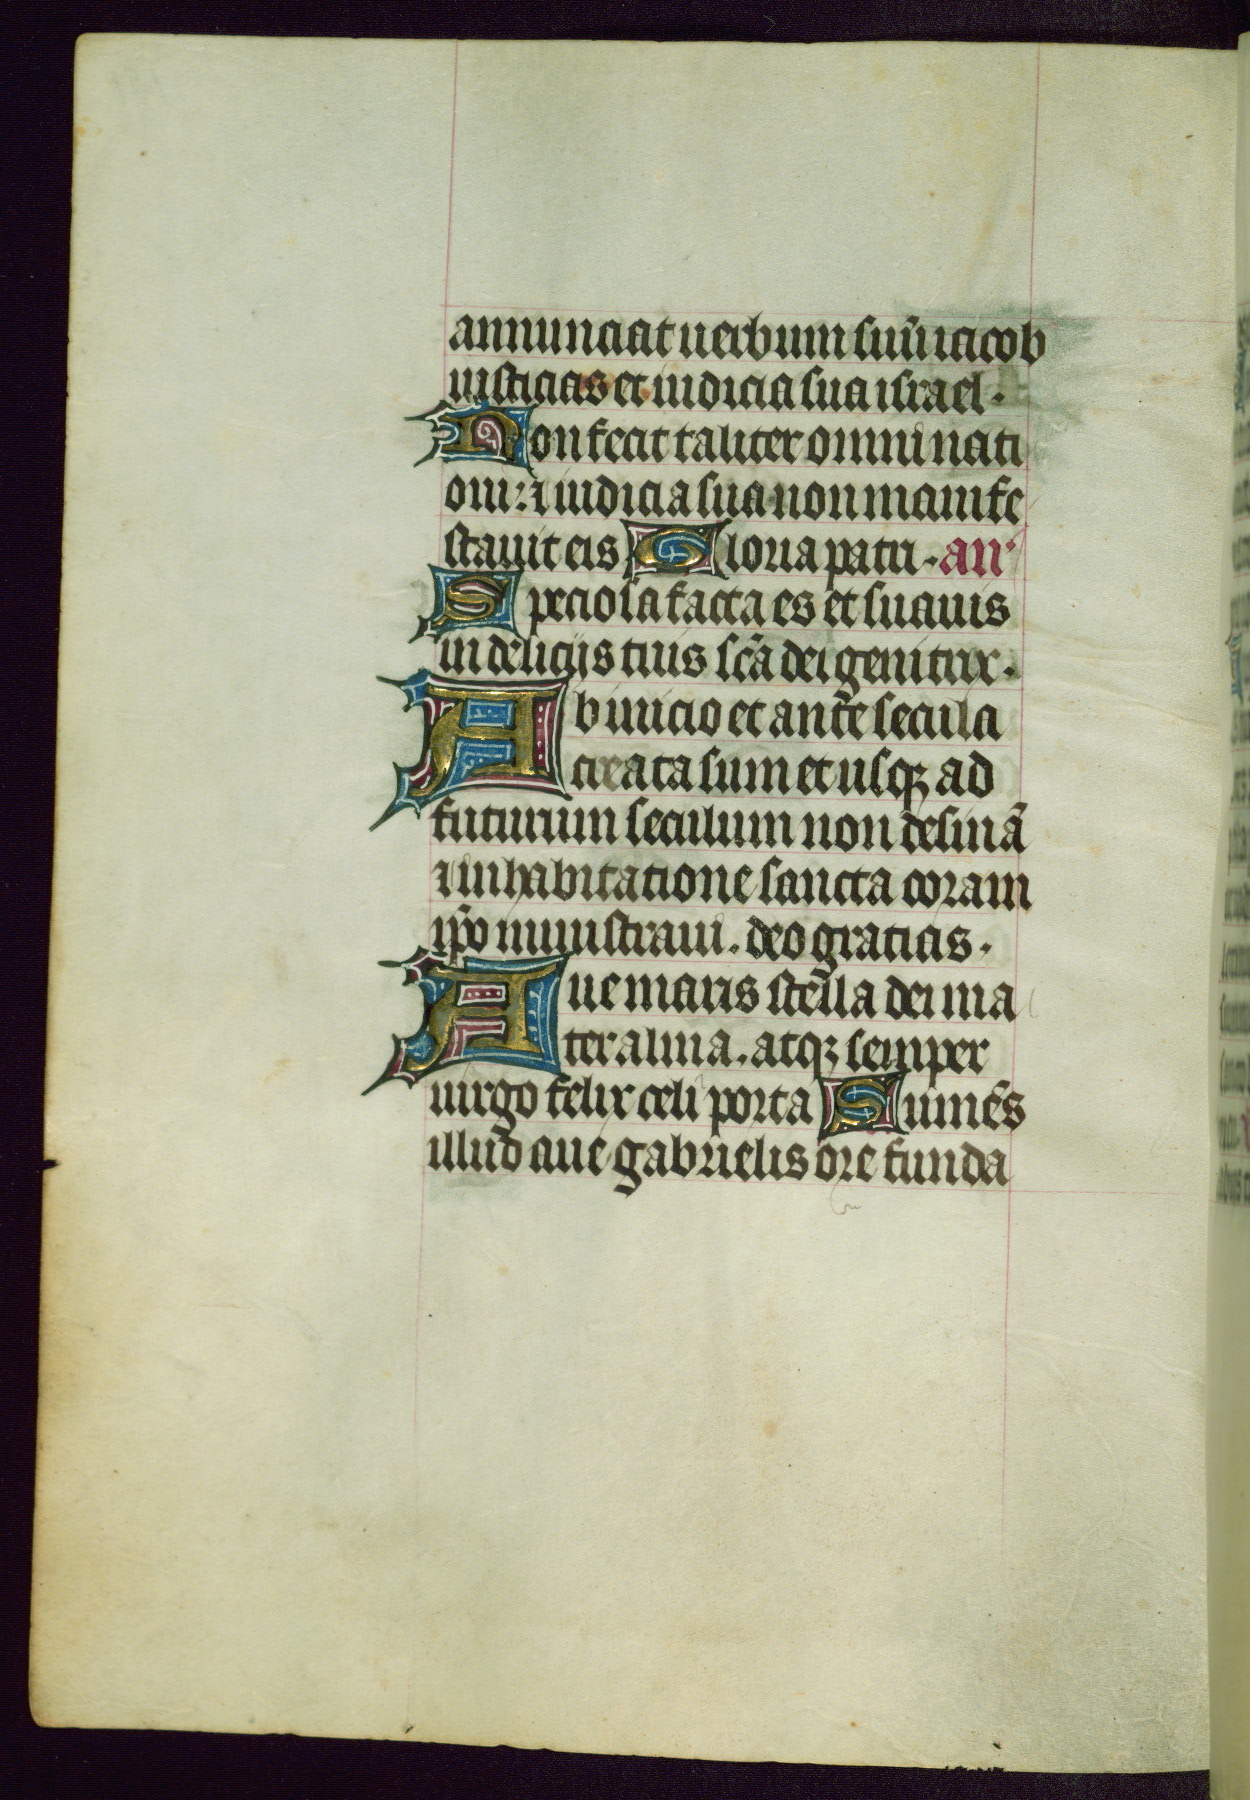 annunciat uerbum suū iacob
iusticias et iudicia sua israel.
Non fecit taliter omni nati
oni: ⁊ iudicia sua non manife
stauit eis Gloria patri. an̄
Speciosa facta es et suauis
in delicijs tuis scā dei genitrix.
Ab inicio et ante secula
creata sum et usqꝫ ad
futurum seculum non desinā
⁊ in habitatione sancta coram
ip̄o ministraui. deo gratias.
Aue maris stella dei ma
ter alma. atqꝫ semper
uirgo felix celi porta Sumēs
illud aue gabrielis ore funda